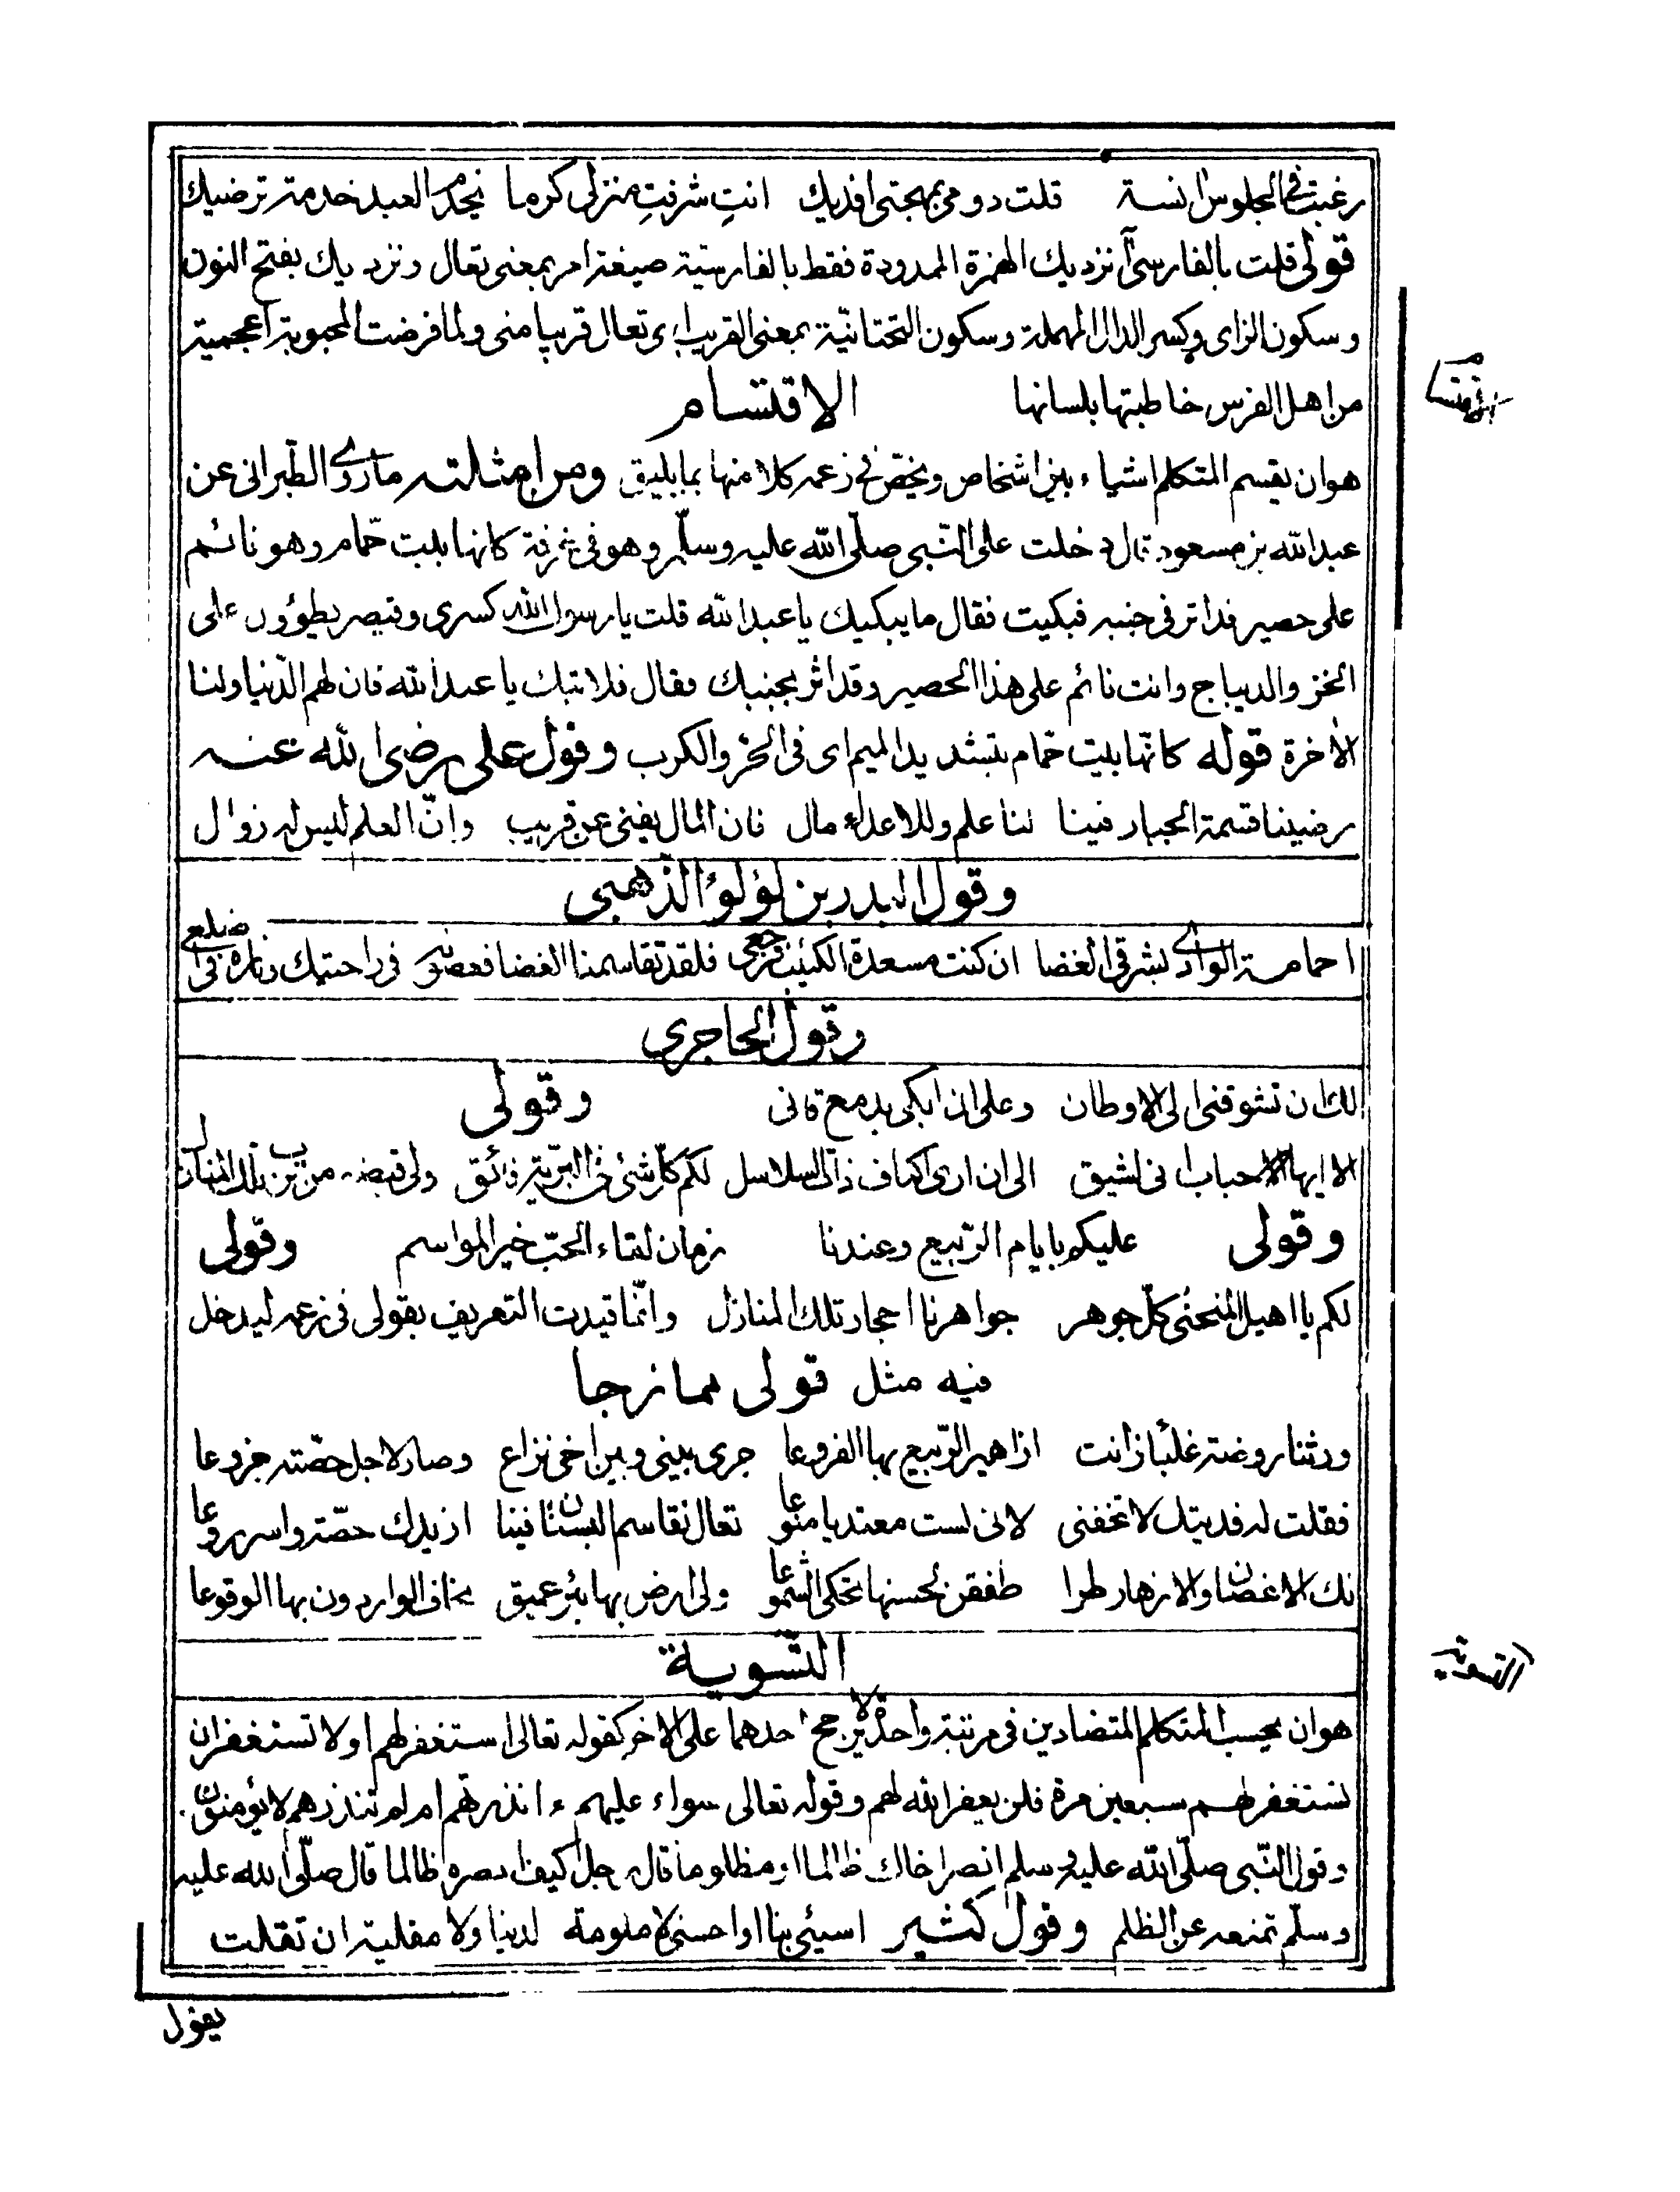 رغبت في الجلوس آنسة قلت دومي بمهجتي افديك انتِ شرفتِ منزلي كرما نجدم العبد خدمة ترضيك
قولي قلت بالفارسي آ نزديك الهمزة الممدودة فقط بالفارسية صيغة امر بمعنى تعال ونزديك بفتح النون
وسكون الزاى وكسر الدال المهملة وسكون التحتانيّة بمعنى القريب اى تعال قريبا منى ولما فرضت المحبوبة اعجمية
من اهل الفرس خاطبتها بلسانها الاقتسام
الاقتسام
هو ان يقسم المتكلم اشياء بين اشخاص ويخصّ في زعمه كلا منها بما يليق ومن امثلته ما روى الطّبرانى عن
عبد الله بن مسعود قال دخلت على النّبى صلّى الله عليه وسلّم وهو فى غرفة كانها بيت حمّام وهو نائم
على حصير قد اثر فى جنبه فبكيت فقال ما يبكيك يا عبد الله قلت يا رسول الله كسرى وقيصر يطؤون على
الخز والديباج وانت نائم على هذا الحصير وقد اثر بجنبك فقال فلا تبك يا عبد الله فان لهم الدّنيا ولنا
الاخرة قوله كانّها بيت حمّام بتشديد الميم اى فى الحرّ والكرب وقول على رضى الله عنه
رضينا قسمة الجبار فينا لنا علم وللاعداء مال فان المال يفنى عن قريب وانّ العلم ليس له زوال
وقول البدر بن لؤلؤ الذّهبى
احمامة الوادى بشرقى الغضا ان كنت مسعدة الكئيب فرجعى فلقد تقاسمنا الغضا فغصونه فى راحتيك وناره فى اضلعى
وقول الحاجرى
لك ان تشوقنى الى الاوطان وعلى ان ابكى بدمع قانى وقولى
الا ايها الاحباب انى لشيق الى ان ارى اكناف ذات السلاسل لكم كلّ شئ فى البريّة فائق ولى قبضة من ترب تلك المنازل
وقولى عليكم بايام الرّبيع وعندنا زمان لقاء الحبّ خير المواسم وقولى
لكم يا اهيل المنحنى كلّ جوهر جواهرنا احجار تلك المنازل وانّما قيدت التعريف بقولى فى زعمه ليدخل
فيه مثل قولى ممازحا
ورثنا روضة غلبا زانت ازاهير الرّبيع بها الفروعا جرى بينى وبين اخى نزاع وصار لاجل حصّته جزوعا
فقلت له فديتك لا تخفنى لانى لست معتديا منوعا تعال نقاسم البستان فينا ازيدك حصّة واسر روعا
لك الاغصان والازهار طرا طفقن لحسنها تحكى الشموعا ولى ارض بها بئر عميق يخاف الواردون بها الوقوعا
التّسوية
التسوية
هو ان يحسب المتكلم المتضادين فى مرتبة واحدة لا يرجح احدهما على الاخر كقوله تعالى استغفر لهم او لا تستغفر ان
تستغفر لهم سبعين مرة فلن يغفر الله لهم وقوله تعالى سواء عليهم ءانذرتهم ام لم تنذرهم لا يؤمنون
وقول النّبى صلّى الله عليه وسلم انصر اخاك ظالما او مظلوما قال رجل كيف انصره ظالما قال صلّى الله عليه
وسلّم تمنعه عن الظلم وقول كثير اسيئى بنا او احسنى لا ملومة لدينا ولا مقلية ان تقلت
يقول